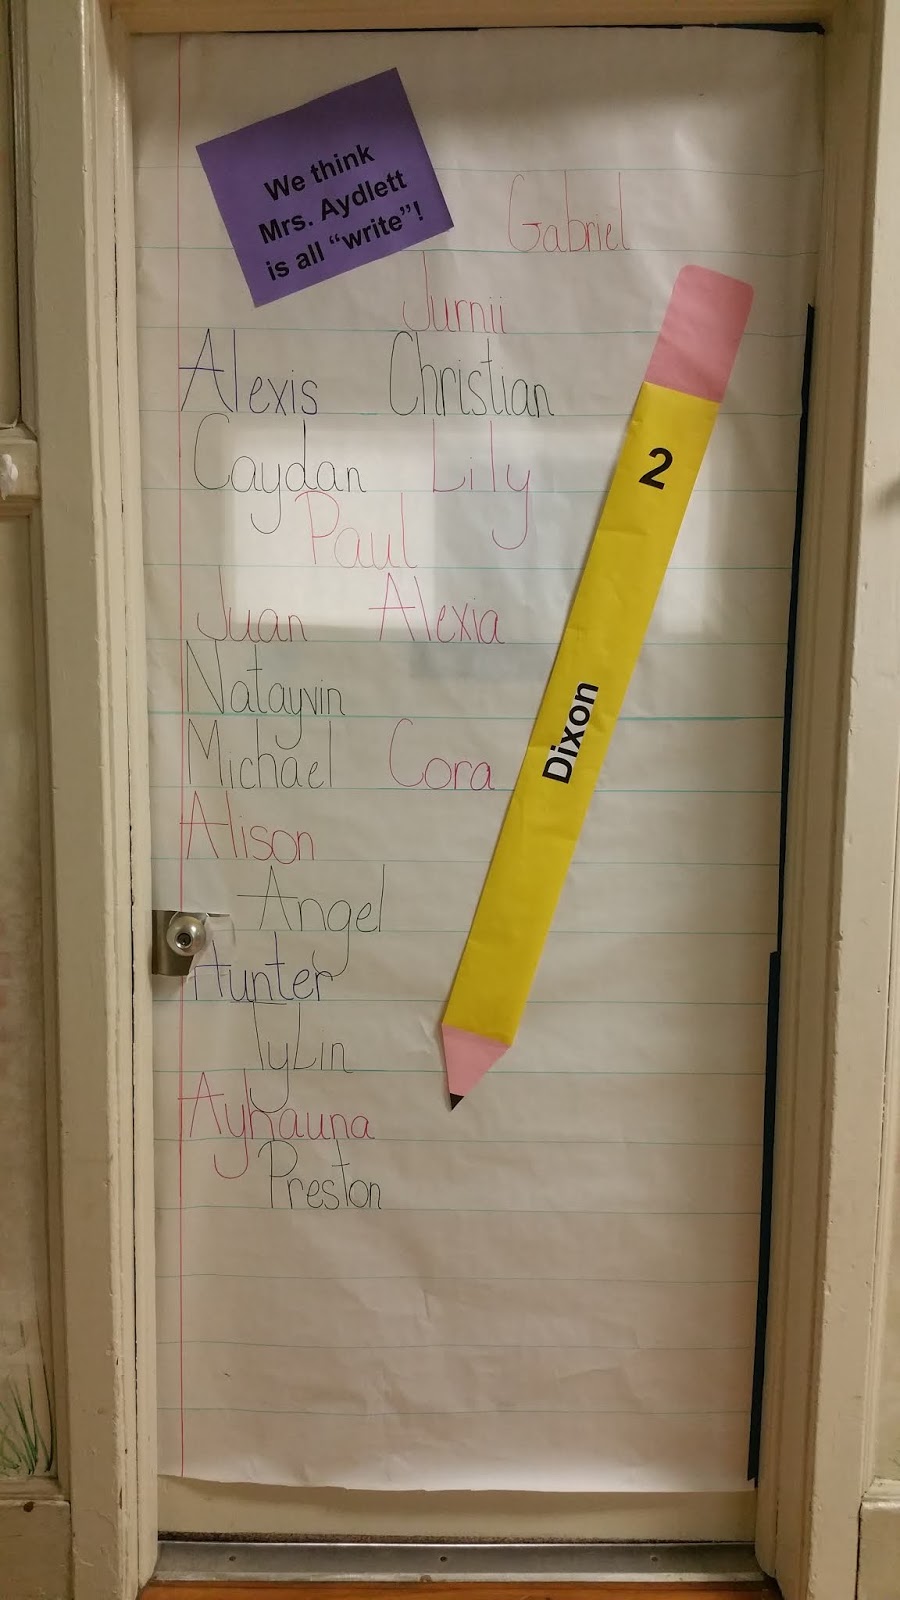 We think
Mrs. Aydlett
is all "write"!
Gabriel
Jurnii
Alexis Christian
Caydan Lily
2
Paul
Juan Alexia
Natayvin
Dixon
Michael Cora
Alison
Angel
Hunter
TyLin
Ayhauna
Preston